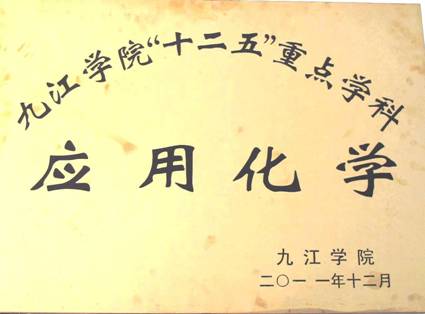 九江学院“十二五”重点学科
应用化学
九江学院
二〇一一年十二月